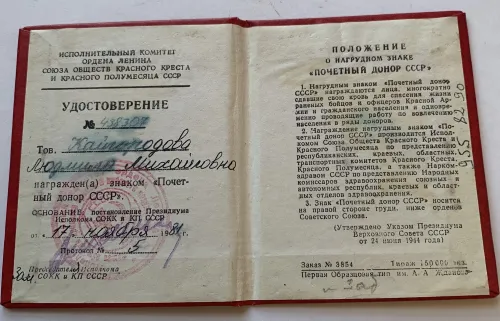 ИСПОЛНИТЕЛЬНЫЙ КОМИТЕТ
ОРДЕНА ЛЕНИНА
СОЮЗА ОБЩЕСТВ КРАСНОГО КРЕСТА
И КРАСНОГО ПОЛУМЕСЯЦА СССР
УДОСТОВЕРЕНИЕ
№
Тов. Кайгородова
Людмила Михайловна
награжден(а) знаком «Почет-
ный донор СССР».
ОСНОВАНИЕ: постановление Президиума
Исполкома СОКК и КП СССР
от 17 ноября 198 г.
Протокол № 5
Зам. Председатель Исполкома
СОКК и КП СССР
ПОЛОЖЕНИЕ
О НАГРУДНОМ ЗНАКЕ
«ПОЧЕТНЫЙ ДОНОР СССР»
1. Нагрудным знаком «Почетный донор
СССР» награждаются лица, многократно
сдавшие свою кровь для спасения жизни
раненых бойцов и офицеров Красной Ар-
мии и гражданского населения и одновре-
менно проводящие работу по вовлечению
населения в ряды доноров.
2. Награждение нагрудным знаком «По-
четный донор СССР» производится Испол-
комом Союза Обществ Красного Креста и
Красного Полумесяца по представлению
республиканских, краевых, областных,
транспортных комитетов Красного Креста,
Красного Полумесяца, а также Нарком-
здравом СССР по представлению Народных
комиссаров здравоохранения союзных и
автономных республик, краевых и област-
ных отделов здравоохранения.
3. Знак «Почетный донор СССР» носится
на правой стороне груди, ниже орденов
Советского Союза.
(Утверждено Указом Президиума
Верховного Совета СССР
от 24 июня 1944 года)
Заказ № 3854 Тираж 150 000 экз.
Первая Образцовая тип. им. А. А. Жданова